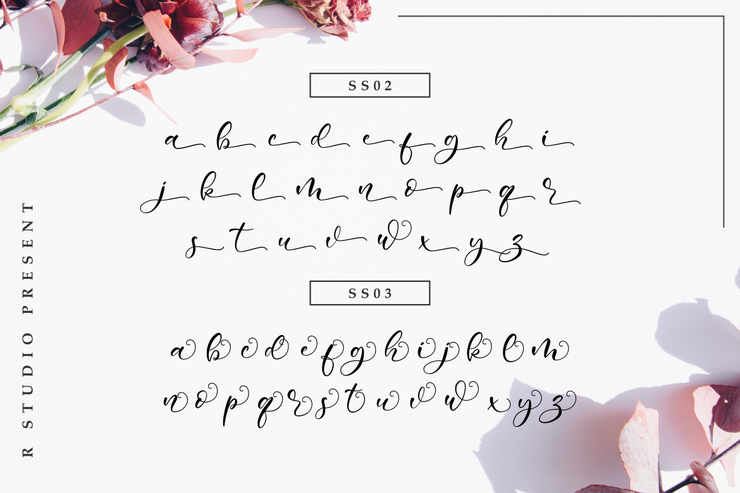 SS02
a b c d e f g h i
j k l m n o p q r
s t u v w x y z
SS03
a b c d e f g h i j k l m
n o p q r s t u v w x y z
R STUDIO PRESENT